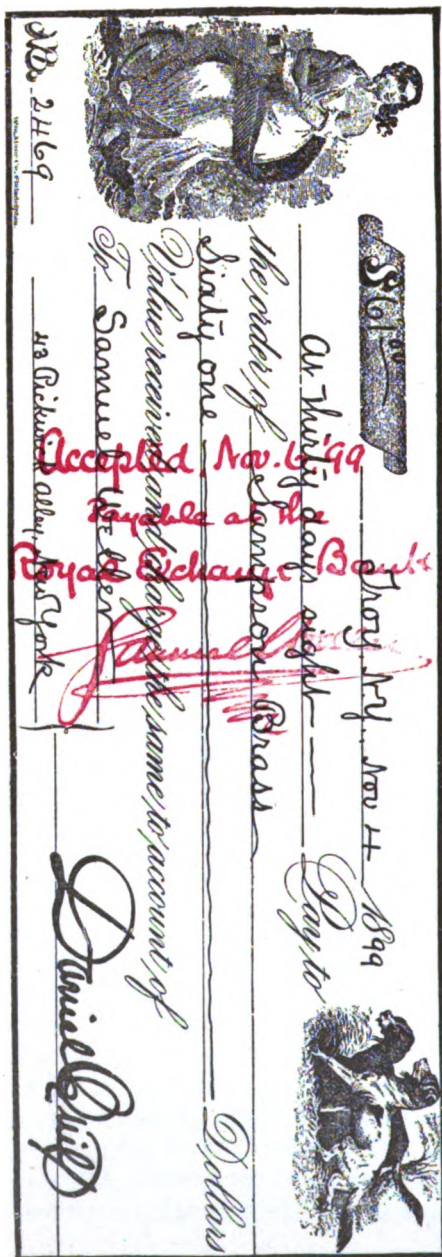 $61.00
Troy N.Y. Nov 4 1899
At thirty days sight — Pay to
the order of Sampson Brass
Sixty one Dollars
Value received and charge the same to account of
To Samuel Weller
43 Pickwick alley, New York
Daniel Quilp
No. 2469
Accepted, Nov. 6 '99
Payable at the
Royal Exchange Bank
Samuel Weller